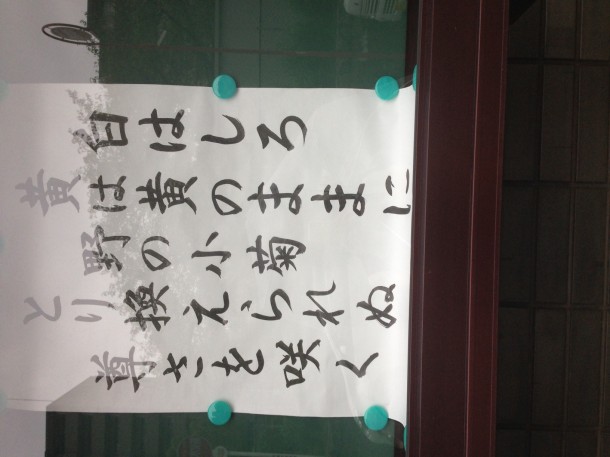 白はしろ
黄は黄のままに
野の小菊
とり換えられぬ
尊さを咲く